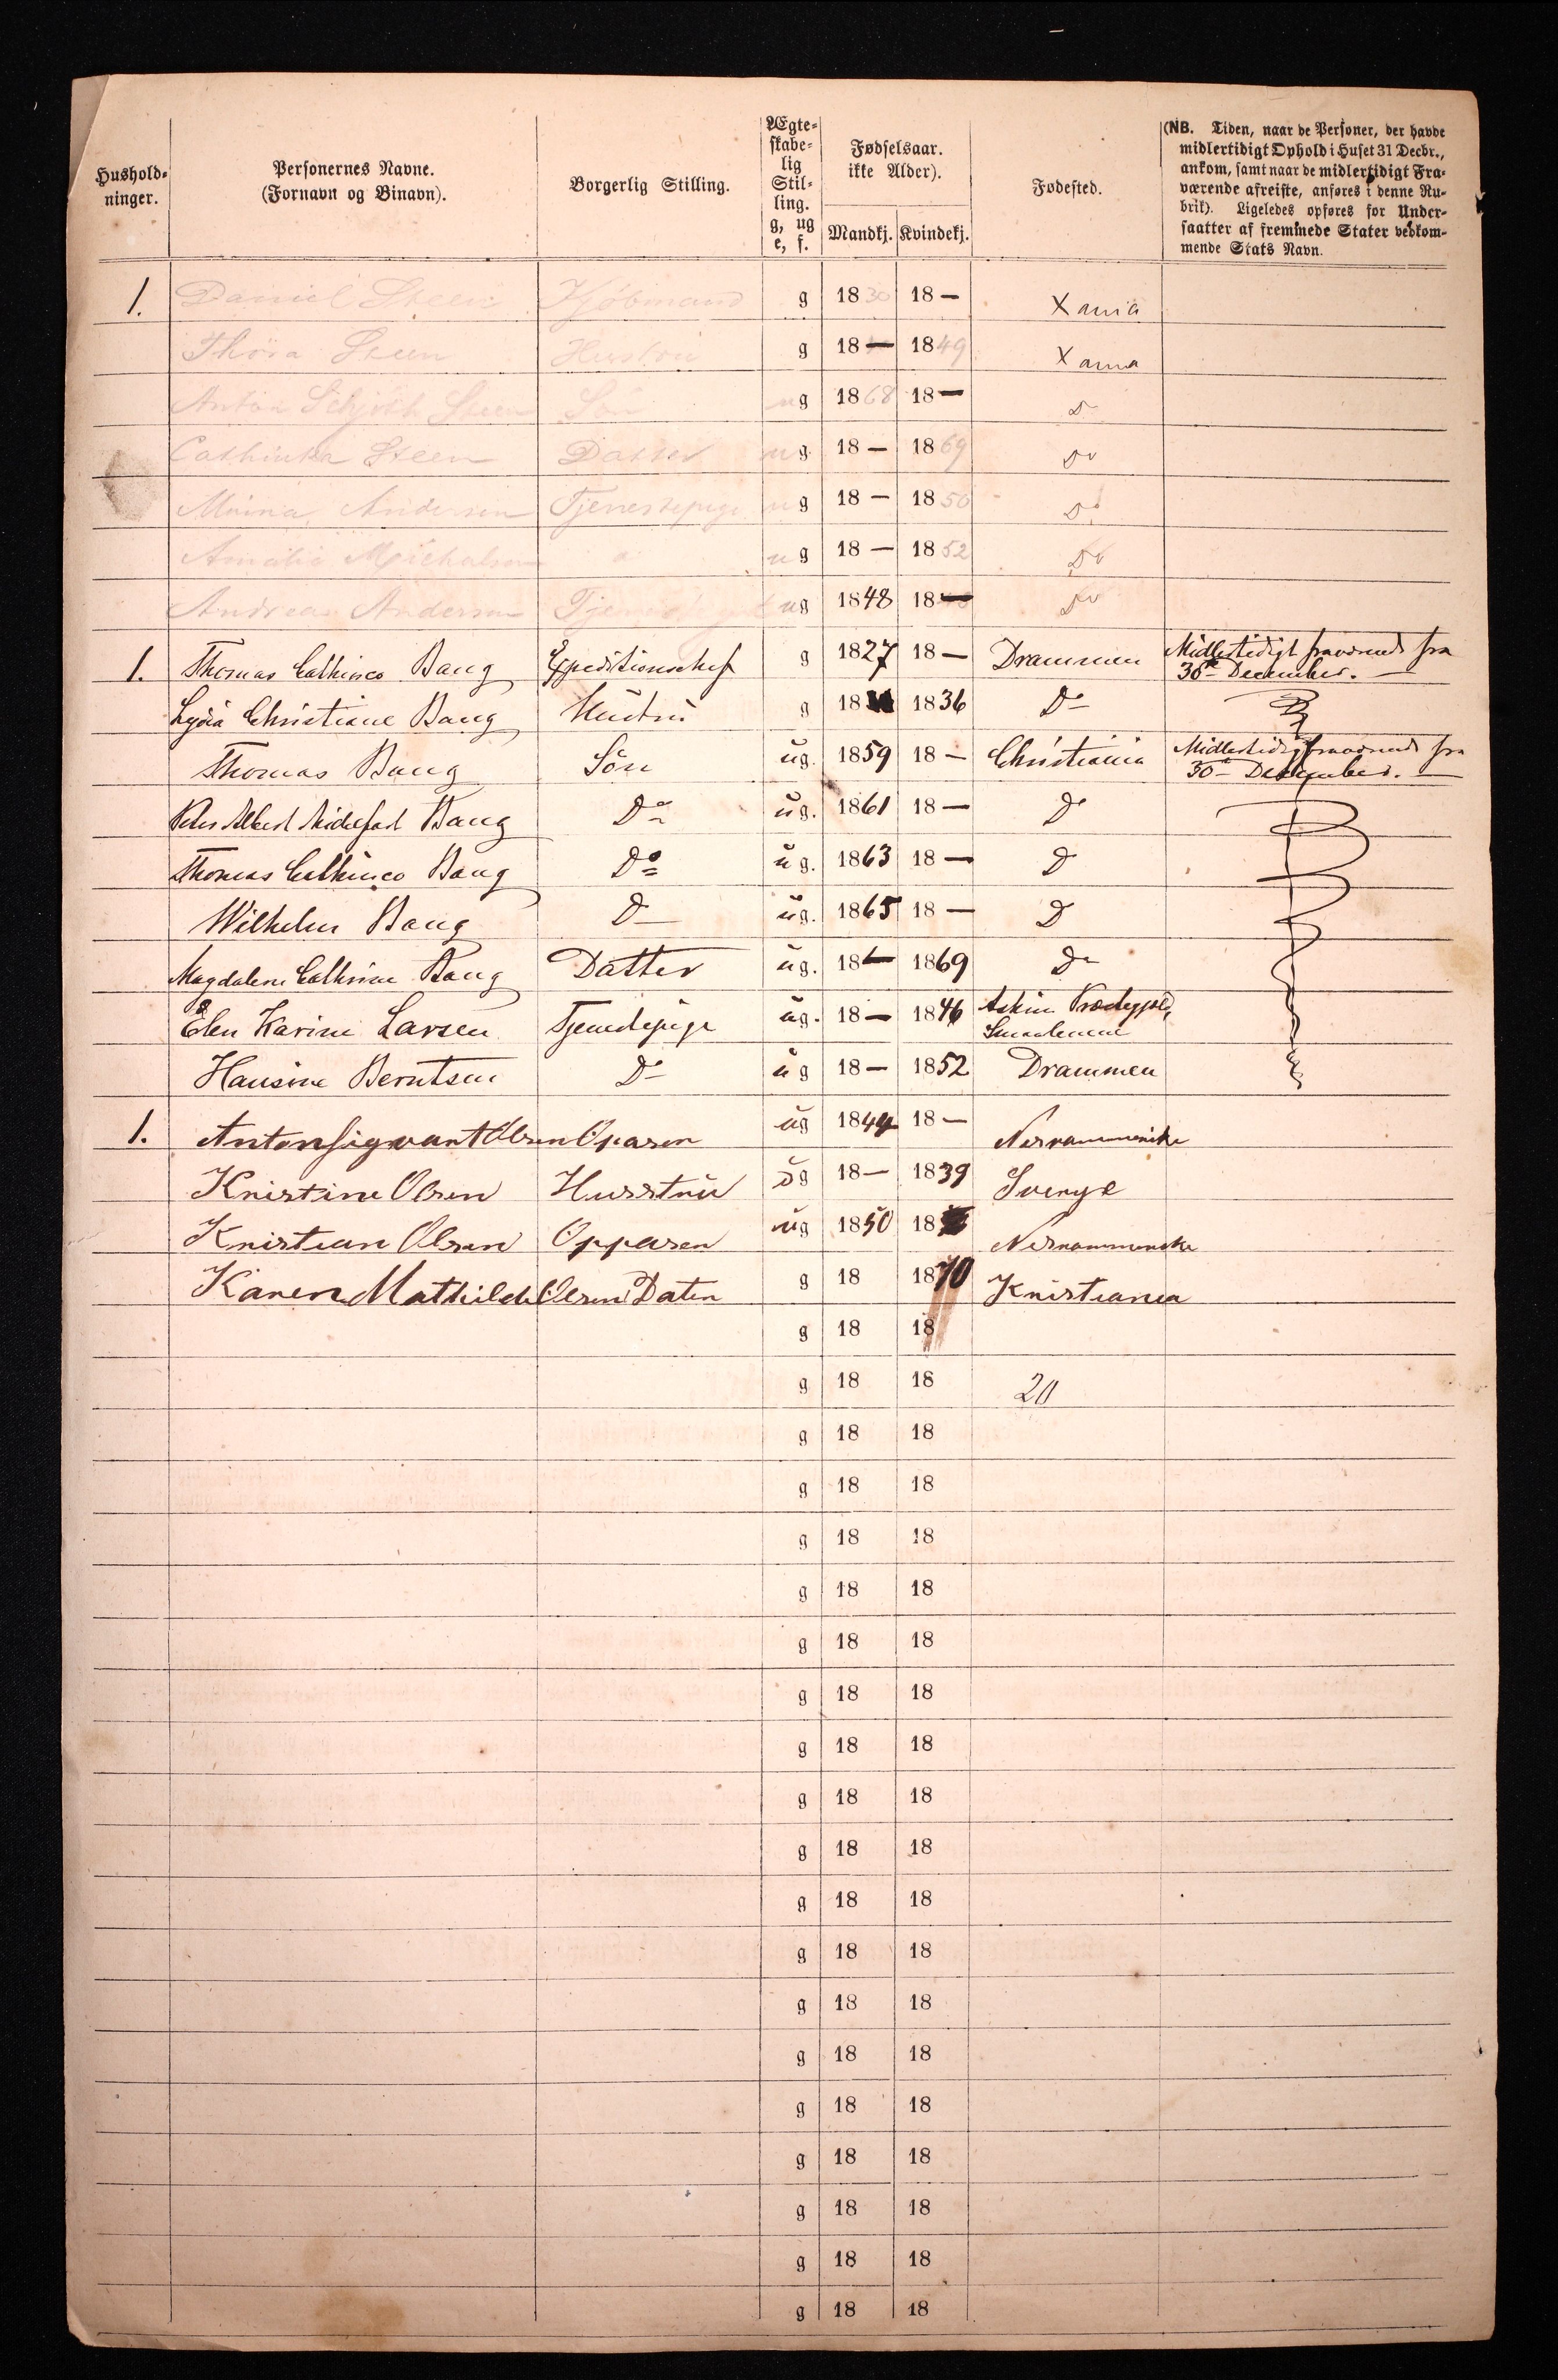 Hushold-
ninger.
Personernes Navne.
(Fornavn og Binavn).
Borgerlig Stilling.
Ægte-
skabe-
lig
Stil-
ling.
g, ug
e, f.
Fødselsaar.
ikke Alder).
Mandkj. Kvindekj.
Fødested.
(NB. Tiden, naar de Personer, der havde
midlertidigt Ophold i Huset 31 Decbr.,
ankom, samt naar de midlertidigt Fra-
værende afreiste, anføres i denne Ru-
brik). Ligeledes opføres for Under-
saatter af fremmede Stater vedkom-
mende Stats Navn.
1. Daniel Steen Kjöbmand g 1830 18— Xania
Thora Steen Hustru g 18— 1849 Xania
Anton Schjöth Steen Sön ug 1868 18— Do
Cathinka Steen Datter ug 18— 1869 Do
Andersen Tjenestepige ug 18— 1850 Do
Amalia ug 18— 1852 Do
Andreas Andersen ug 1848 18— Do
1. Thomas Cathinco Bang Expeditionschef g 1827 18— Drammen Midlertidigt fraværende fra
30te December. —
Lydia Christiane Bang Hustru g 18 1836 Do
Thomas Bang Sön ug. 1859 18— Christiania Midlertidigt fraværende fra
30te December. —
Albert Bang Do ug. 1861 18— Do
Thomas Cathinco Bang Do ug. 1863 18— Do
Wilhelm Bang Do ug. 1865 18— D
Magdalene Cathrine Bang Datter ug. 18— 1869 Do
Elen Karine Larsen Tjenestepige ug. 18— 1846 Askim
Smaalenene
Hansine Berntsen Do ug 18— 1852 Drammen
1. Anton Sigvant Olsen Oparen ug 1844 18—
Kristine Olsen Husstrü g 18— 1839 Sverge
Kristian Olsen Opparen ug 1850 18
Karen Mathilde Olsen Daten g 18 1870 Kristiania
g 18 18
g 18 18 20
g 18 18
g 18 18
g 18 18
g 18 18
g 18 18
g 18 18
g 18 18
g 18 18
g 18 18
g 18 18
g 18 18
g 18 18
g 18 18
g 18 18
g 18 18
g 18 18
g 18 18
g 18 18